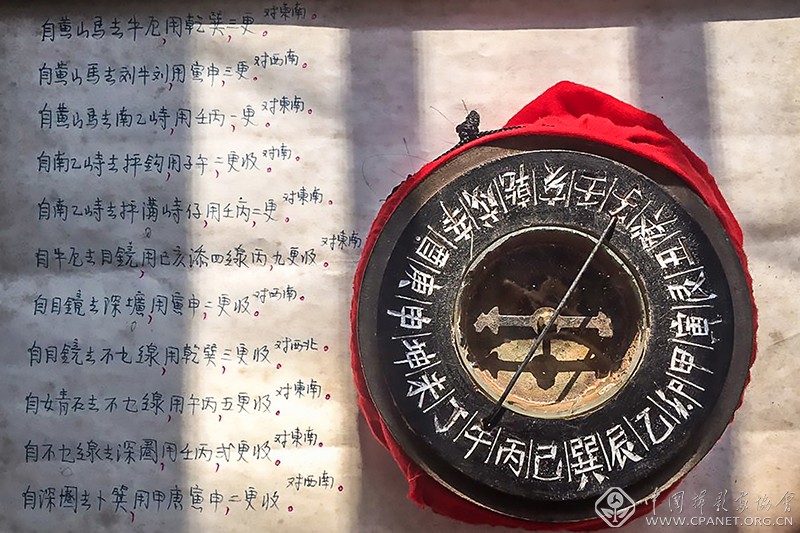 自黄山馬去牛厄,用乾巽,三更。对東南。
自黄山馬去刘牛刘,用寅申,三更。对西南。
自黄山馬去南乙峙,用壬丙,一更。对東南。
自南乙峙去抨鈎,用子午,二更收。对南。
自南乙峙去抨满峙仔,用壬丙,二更。对東南。
自牛厄去目鏡,用巳亥添四線丙,九更收。对東南
自目鏡去深壙,用寅申,二更收。对西南。
自目鏡去不乜線,用乾巽,三更收。对西北
自女青石去不乜線,用午丙,五更收。对東南。
自不乜線去深圈,用壬丙,弍更收。对東南。
自深圈去卜簧,用甲庚寅申,二更收。对西南。
子 癸 丑 艮 寅 甲 卯 乙 辰 巽 己 丙 午 丁 未 坤 申 庚 酉 辛 戌 乾 亥 壬
中国摄影家协会
WWW.CPANET.ORG.CN